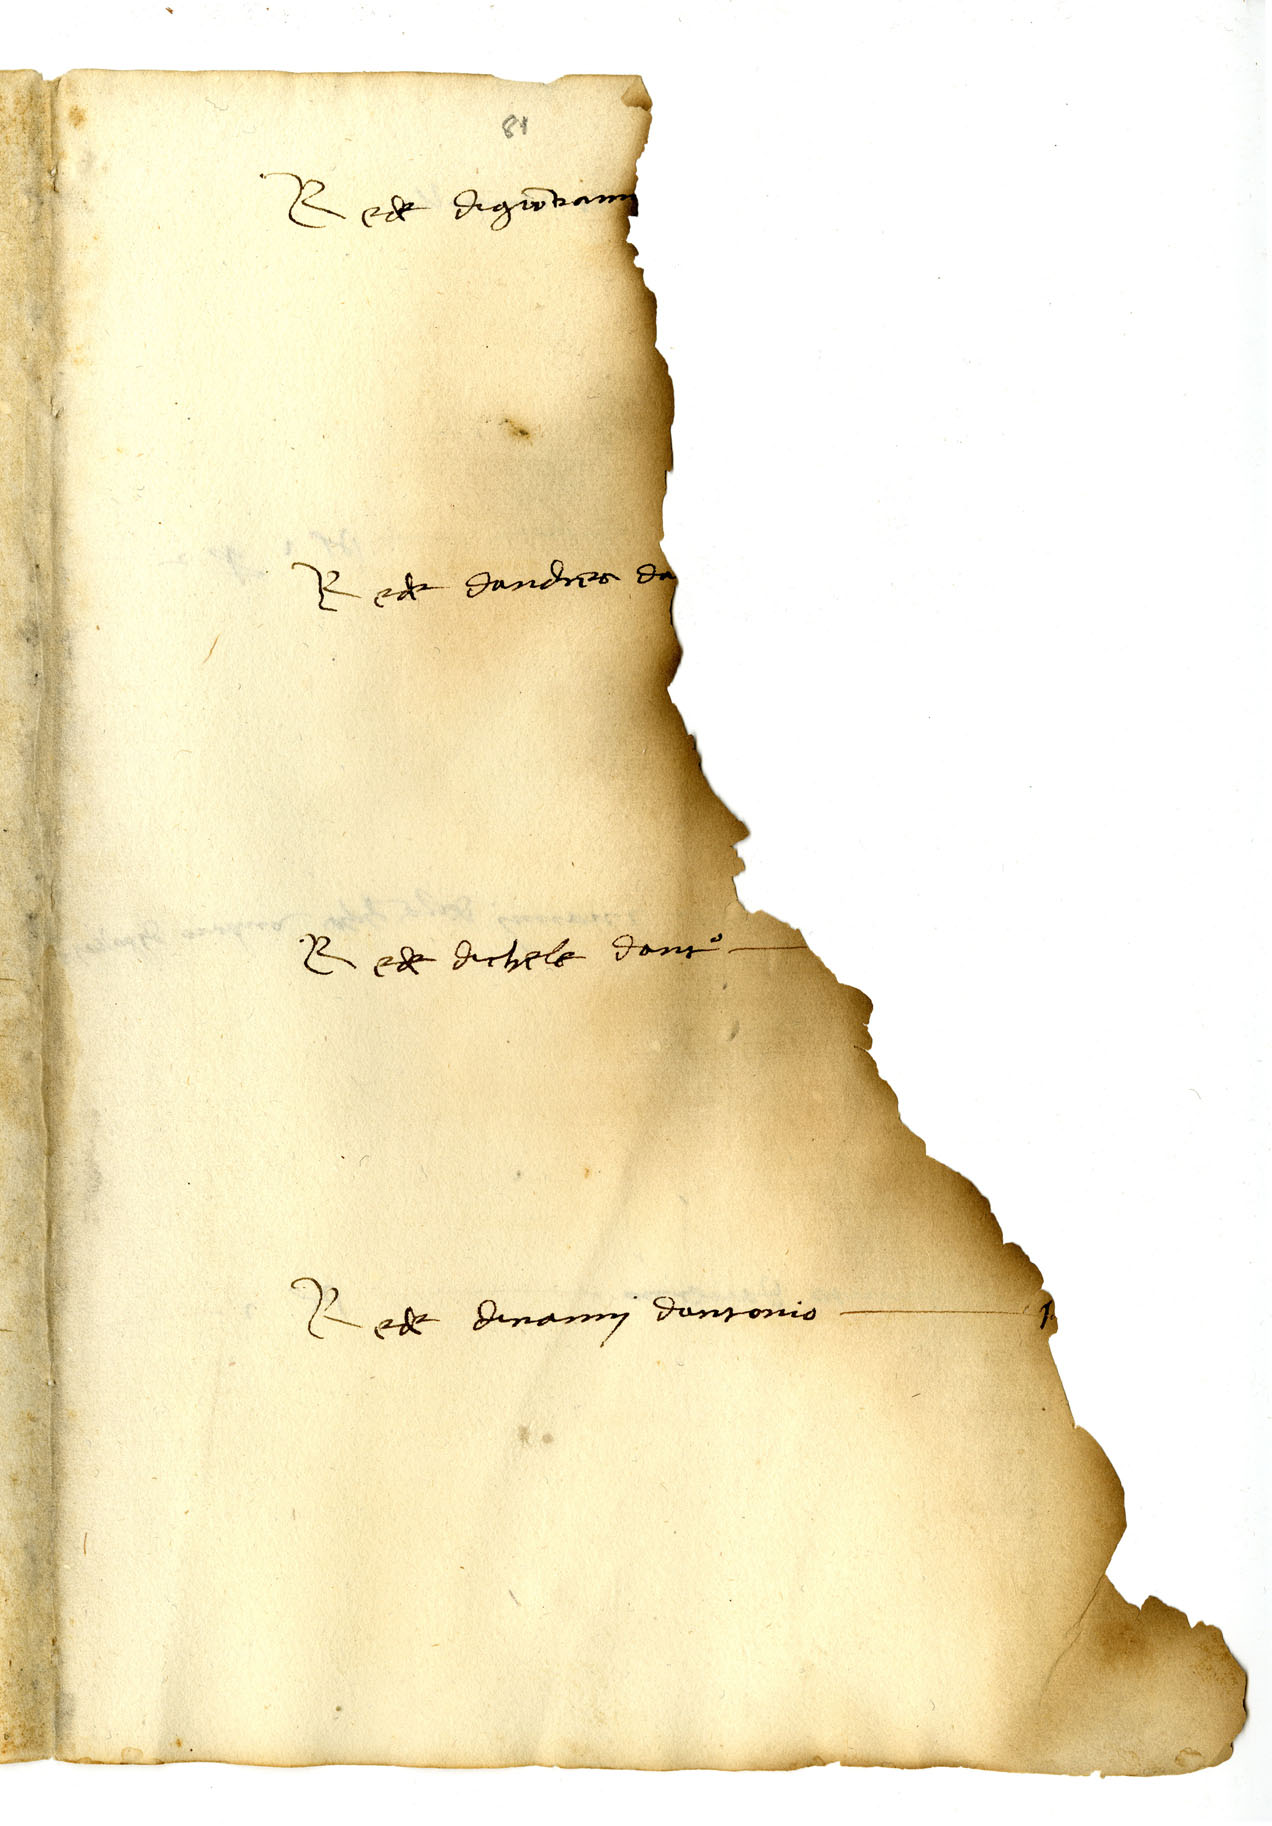 81
Rede digiovanni
Rede dandrea da
Rede dichele dantº
Rede dinannj dantonio